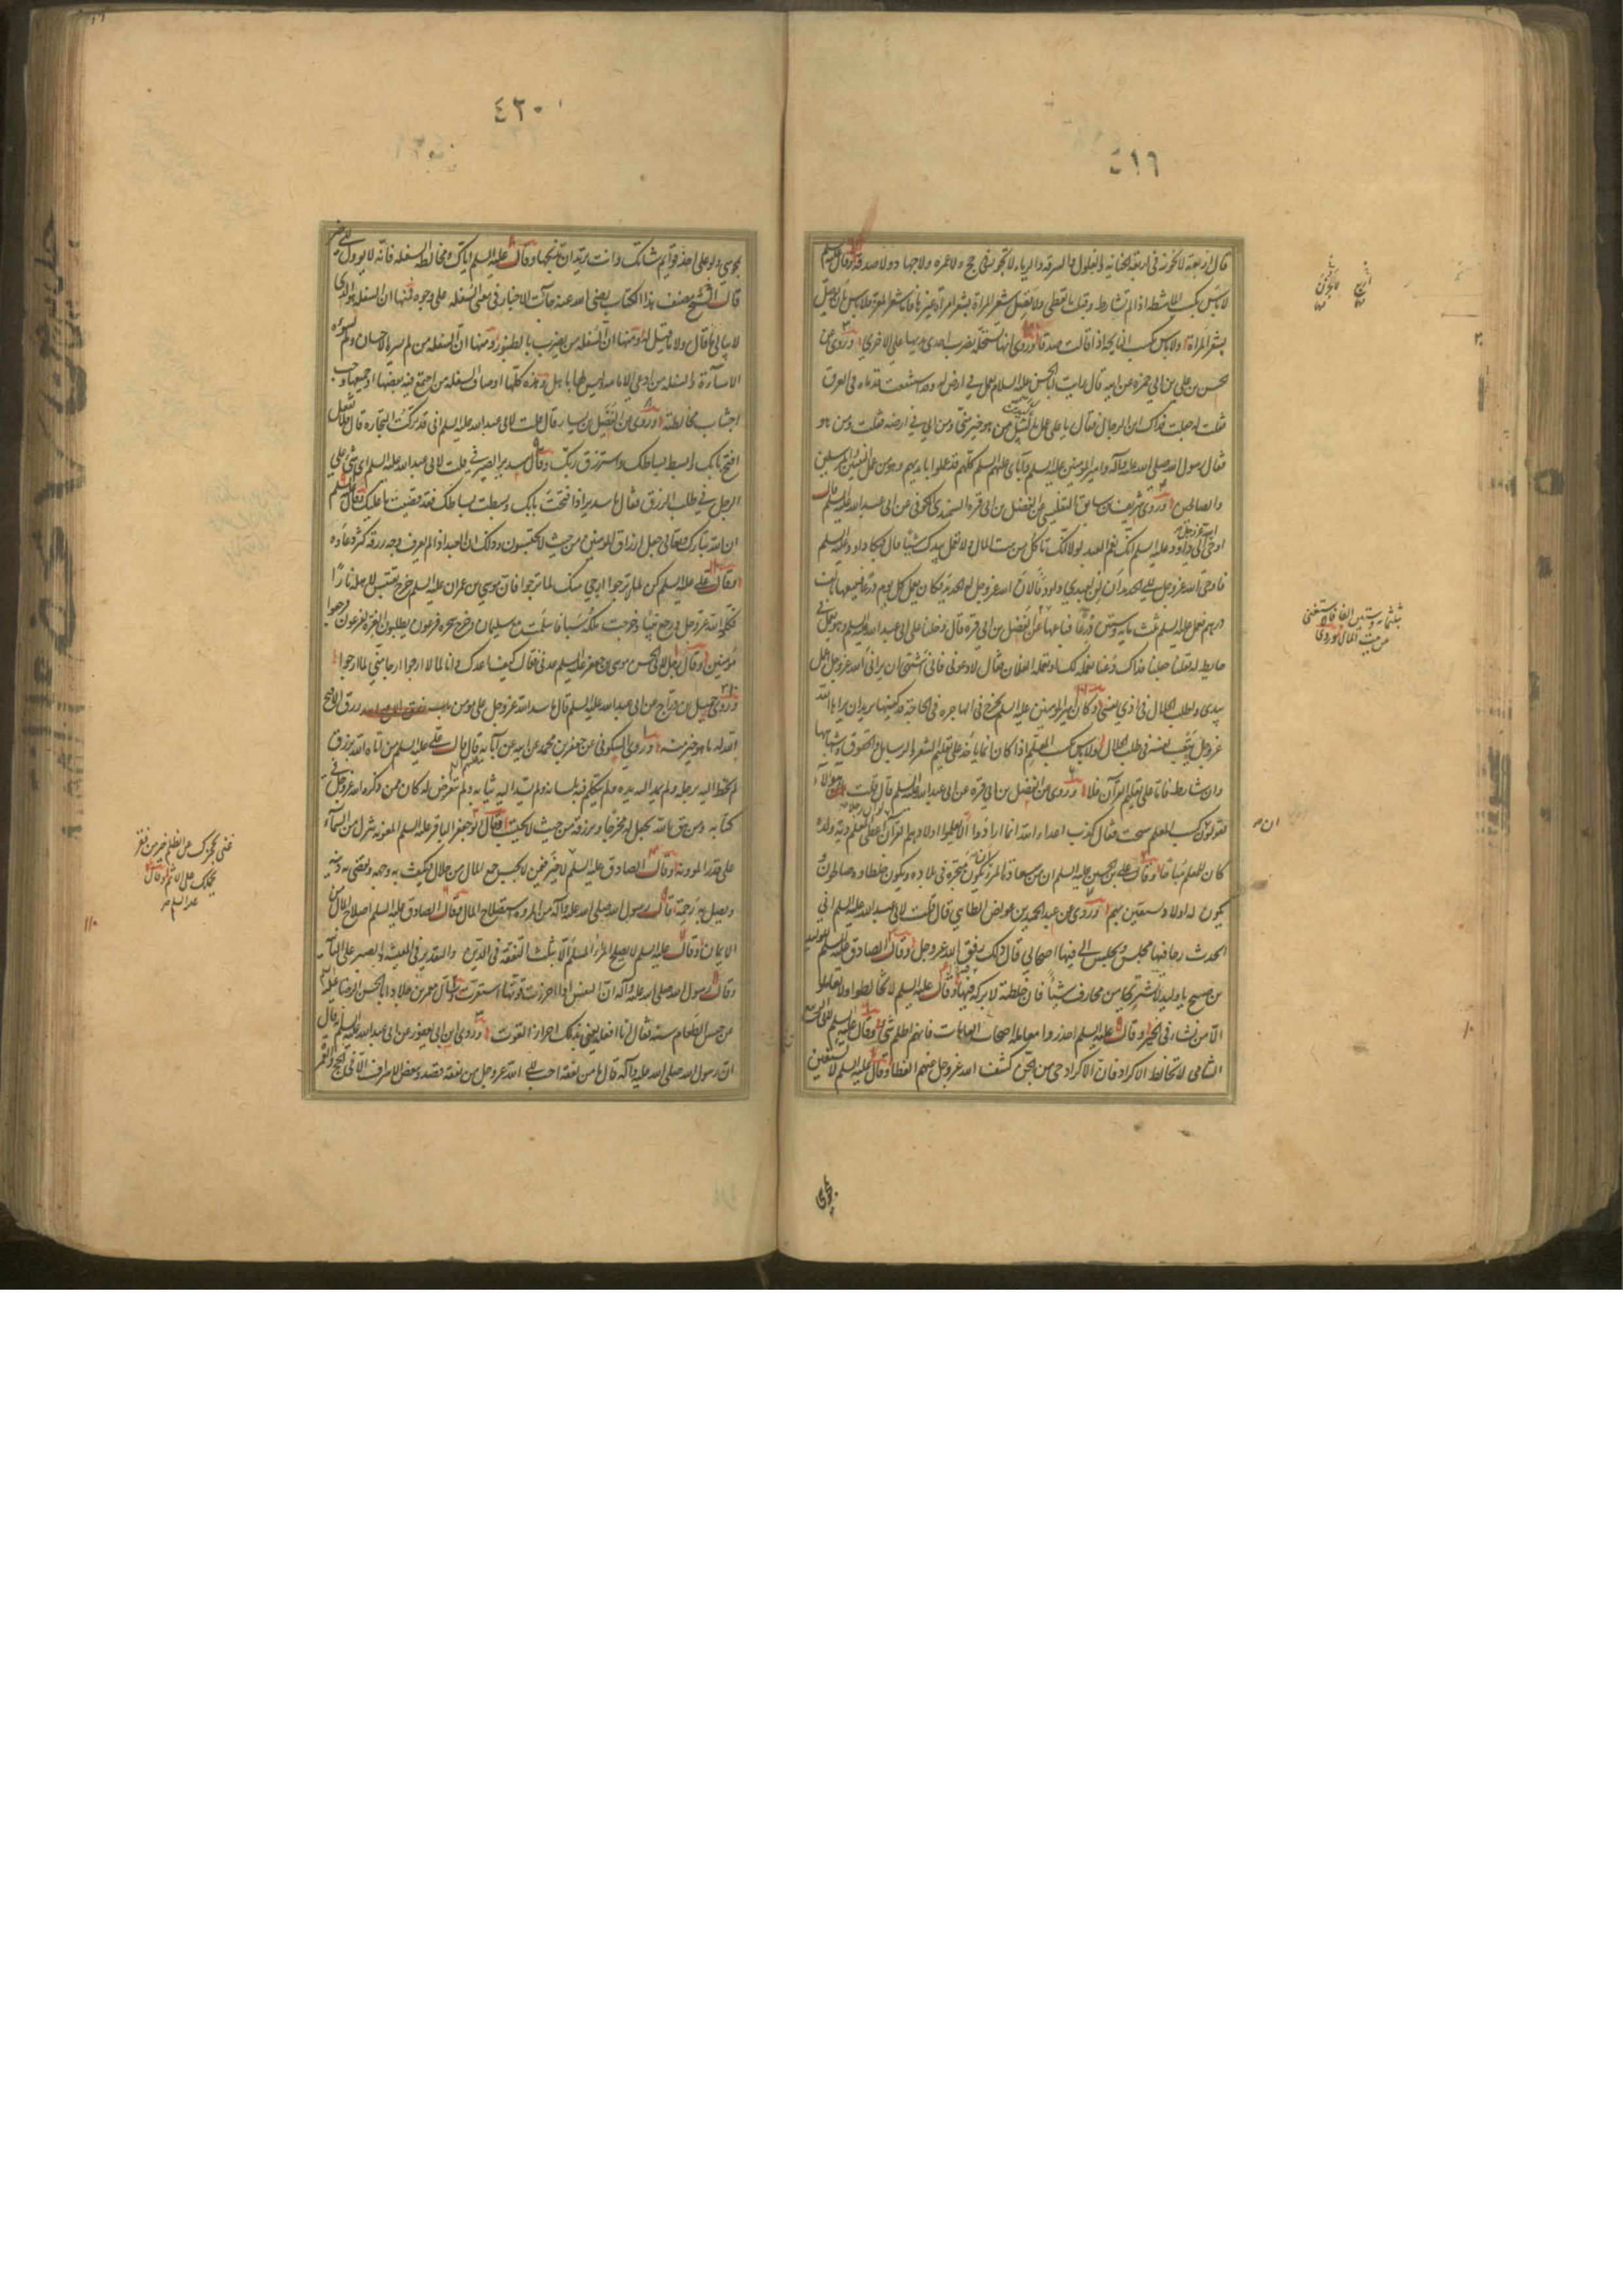 ٤١٦
قال اربعة لا تجوز في اربعة الخيانة والغلول والسرقة والرياء لا تجوز في حج ولا عمره ولا جهاد ولا صدقة وقال عليه السلم
لا باس بكسب الماشطة اذا لم تشارط وقبلت ما تعطى ولا تصل شعر المراة بشعر امراة غيرها فاما شعر المعز فلا باس بان يوصل
بشعر المراة ولا باس بكسب النايحة اذا قالت صدقا وروى انها تستحله بضرب احدى يديها على الاخرى وروى عن
الحسن بن علي بن ابي حمزه عن ابيه قال رايت ابا الحسن عليه السلام يعمل في ارض له وقد استنقعت قدماه في العرق
فقلت له جعلت فداك اين الرجال فقال يا علي عمل باليد من هو خير مني ومن ابي في ارضه فقلت ومن هو
فقال رسول الله صلى الله عليه وآله وامير المؤمنين عليه السلم وآبائي عليهم السلم كلهم قد عملوا بايديهم وهو من عمل النبيين والمرسلين
والصالحين وروى شريف بن سابق التفليسي عن الفضل بن ابي قره السمندي الكوفي عن ابي عبد الله عليه السلم قال
اوحى الله عز وجل الى داود عليه السلم انك نعم العبد لولا انك تاكل من بيت المال ولا تعمل بيدك شيئا قال فبكى داود عليه السلم
فاوحى الله عز وجل الى الحديد ان لن لعبدي داود فالان الله عز وجل له الحديد فكان يعمل كل يوم درعا فيبيعها بالف
درهم فعمل عليه السلم ثلث مايه وستين درعا فباعها عن الفضل بن ابي قره قال دخلنا على ابي عبد الله عليه السلم وهو يعمل في
حايط له فقلنا جعلنا فداك دعنا نعمله لك او تعمله الغلمان فقال لا دعوني فاني اشتهي ان يراني الله عز وجل اعمل
بيدي واطلب الحلال في اذى نفسي وكان امير المؤمنين عليه السلم يخرج في الهاجره في الحاجة قد كفيها يريد ان يراه الله
عز وجل يتعب نفسه في طلب الحلال ولا باس بكسب المعلم اذا كان انما ياخذ على تعليم الشعر والرسايل والحقوق واشباهها
وان شارط فاما على تعليم القرآن فلا وروى عن الفضل بن ابي قره عن ابي عبد الله عليه السلم قال قلت له ان هولاء
يقولون كسب المعلم سحت فقال كذب اعداء الله انما ارادوا الا يعلموا اولادهم القرآن لو ان رجلا اعطى المعلم دية ولده
كان للمعلم مباحا وقال علي بن الحسين عليه السلم ان من سعادة المرء ان يكون متجره في بلاده ويكون خلطاوه صالحين
يكون له اولاد يستعين بهم وروى عن عبد الحميد بن عواض الطائي قال قلت لابي عبد الله عليه السلم اني
اتخذت رحا فيها مجلسي ويجلس الى فيها اصحابي قال ذلك رفق الله عز وجل وقال الصادق عليه السلم لوليد
بن صبيح يا وليد لا تشتر لي من محارف شيئا فان خلطته لا بركه فيها وقال عليه السلم لا تخالطوا ولا تعاملوا
الا من نشاء في الخير وقال عليه السلم احذروا معامله اصحاب العاهات فانهم اظلم شيء وقال عليه السلم لابي الربيع
الشامي لا تخالط الاكراد فان الاكراد حي من الجن كشف الله عز وجل عنهم الغطا وقال عليه السلم لا تستعين
بمجوسي
بثلثمائة وستين الفا فاستغنى
عن بيت المال وروى
٤٢٠
بمجوسي ولو على اخذ قوايم شاتك وانت تريد ان تذبحها وقال عليه السلم اياك ومخالطة السفله فانه لا يؤول الى خير
قال الشيخ مصنف هذا الكتاب رضي الله عنه جاءت الاخبار في معنى السفله على وجوه فمنها ان السفله هو الذي
لا يبالي ما قال ولا ما قيل له ومنها ان السفله من يضرب بالطنبور ومنها ان السفله من لم يسره الاحسان ولم تسوءه
الاساءة والسفله من ادعى الامامه وليس لها باهل وهذه كلها اوصاف السفله من اجتمع فيه بعضها او جميعها وجب
اجتناب مخالطته وروى عن الفضيل بن يسار قال قلت لابي عبد الله عليه السلم اني قد تركت التجاره قال فلا تفعل
افتح بابك وابسط بساطك واسترزق ربك وقال سدير الصيرفي قلت لابي عبد الله عليه السلم اي شيء على
الرجل في طلب الرزق فقال يا سدير اذا فتحت بابك وبسطت بساطك فقد قضيت ما عليك وقال عليه السلم
ان الله تبارك وتعالى جعل ارزاق المؤمنين من حيث لا يحتسبون وذلك ان العبد اذا لم يعرف وجه رزقه كثر دعاؤه
وقال علي عليه السلم كن لما لا ترجوا ارجى منك لما ترجوا فان موسى بن عمران عليه السلم خرج يقتبس لاهله نارا
فكلمه الله عز وجل ورجع نبيا وخرجت ملكة سبا فاسلمت مع سليمان وخرج سحره فرعون يطلبون العزة لفرعون فرجعوا
مؤمنين وقال رجل لابي الحسن موسى بن جعفر عليه السلم عدني فقال كيف اعدك وانا لما لا ارجوا ارجا مني لما ارجوا
وروى جميل بن دراج عن ابي عبد الله عليه السلم قال ما سد الله عز وجل على مؤمن باب رزق الا فتح
الله له ما هو خير منه وروى السكوني عن جعفر بن محمد عن ابيه عن آبائه قال قال علي عليه السلم من اتاه الله برزق
لم يخط اليه برجله ولم يمد اليه يده ولم يتكلم فيه بلسانه ولم يشد اليه ثيابه ولم يتعرض له كان ممن ذكره الله عز وجل في
كتابه ومن يتق الله يجعل له مخرجا ويرزقه من حيث لا يحتسب وقال ابو جعفر الباقر عليه السلم المعونه تنزل من السماء
على قدر المؤونة وقال الصادق عليه السلم لا خير فيمن لا يحب جمع المال من حلال فيكف به وجهه ويقضي به دينه
ويصل به رحمة قال رسول الله صلى الله عليه وآله من المروه استصلاح المال وقال الصادق عليه السلم اصلاح المال من
الايمان وقال عليه السلم لا يصلح المرء المسلم الا بثلث التفقه في الدين والتقدير في المعيشة والصبر على النائبه
وقال رسول الله صلى الله عليه وآله ان النفس اذا احرزت قوتها استقرت وسأل معمر بن خلاد ابا الحسن الرضا عليه السلم
عن حبس الطعام سنه فقال انا افعله يعني بذلك احراز القوت وروى ابن ابي يعفور عن ابي عبد الله عليه السلم قال
ان رسول الله صلى الله عليه وآله قال ما من نفقة احب الى الله عز وجل من نفقة قصد ويبغض الاسراف الا في الحج والعمره
غنى يحجزك عن الظلم خير من فقر
يحملك على الاثم وقال
عليه السلم